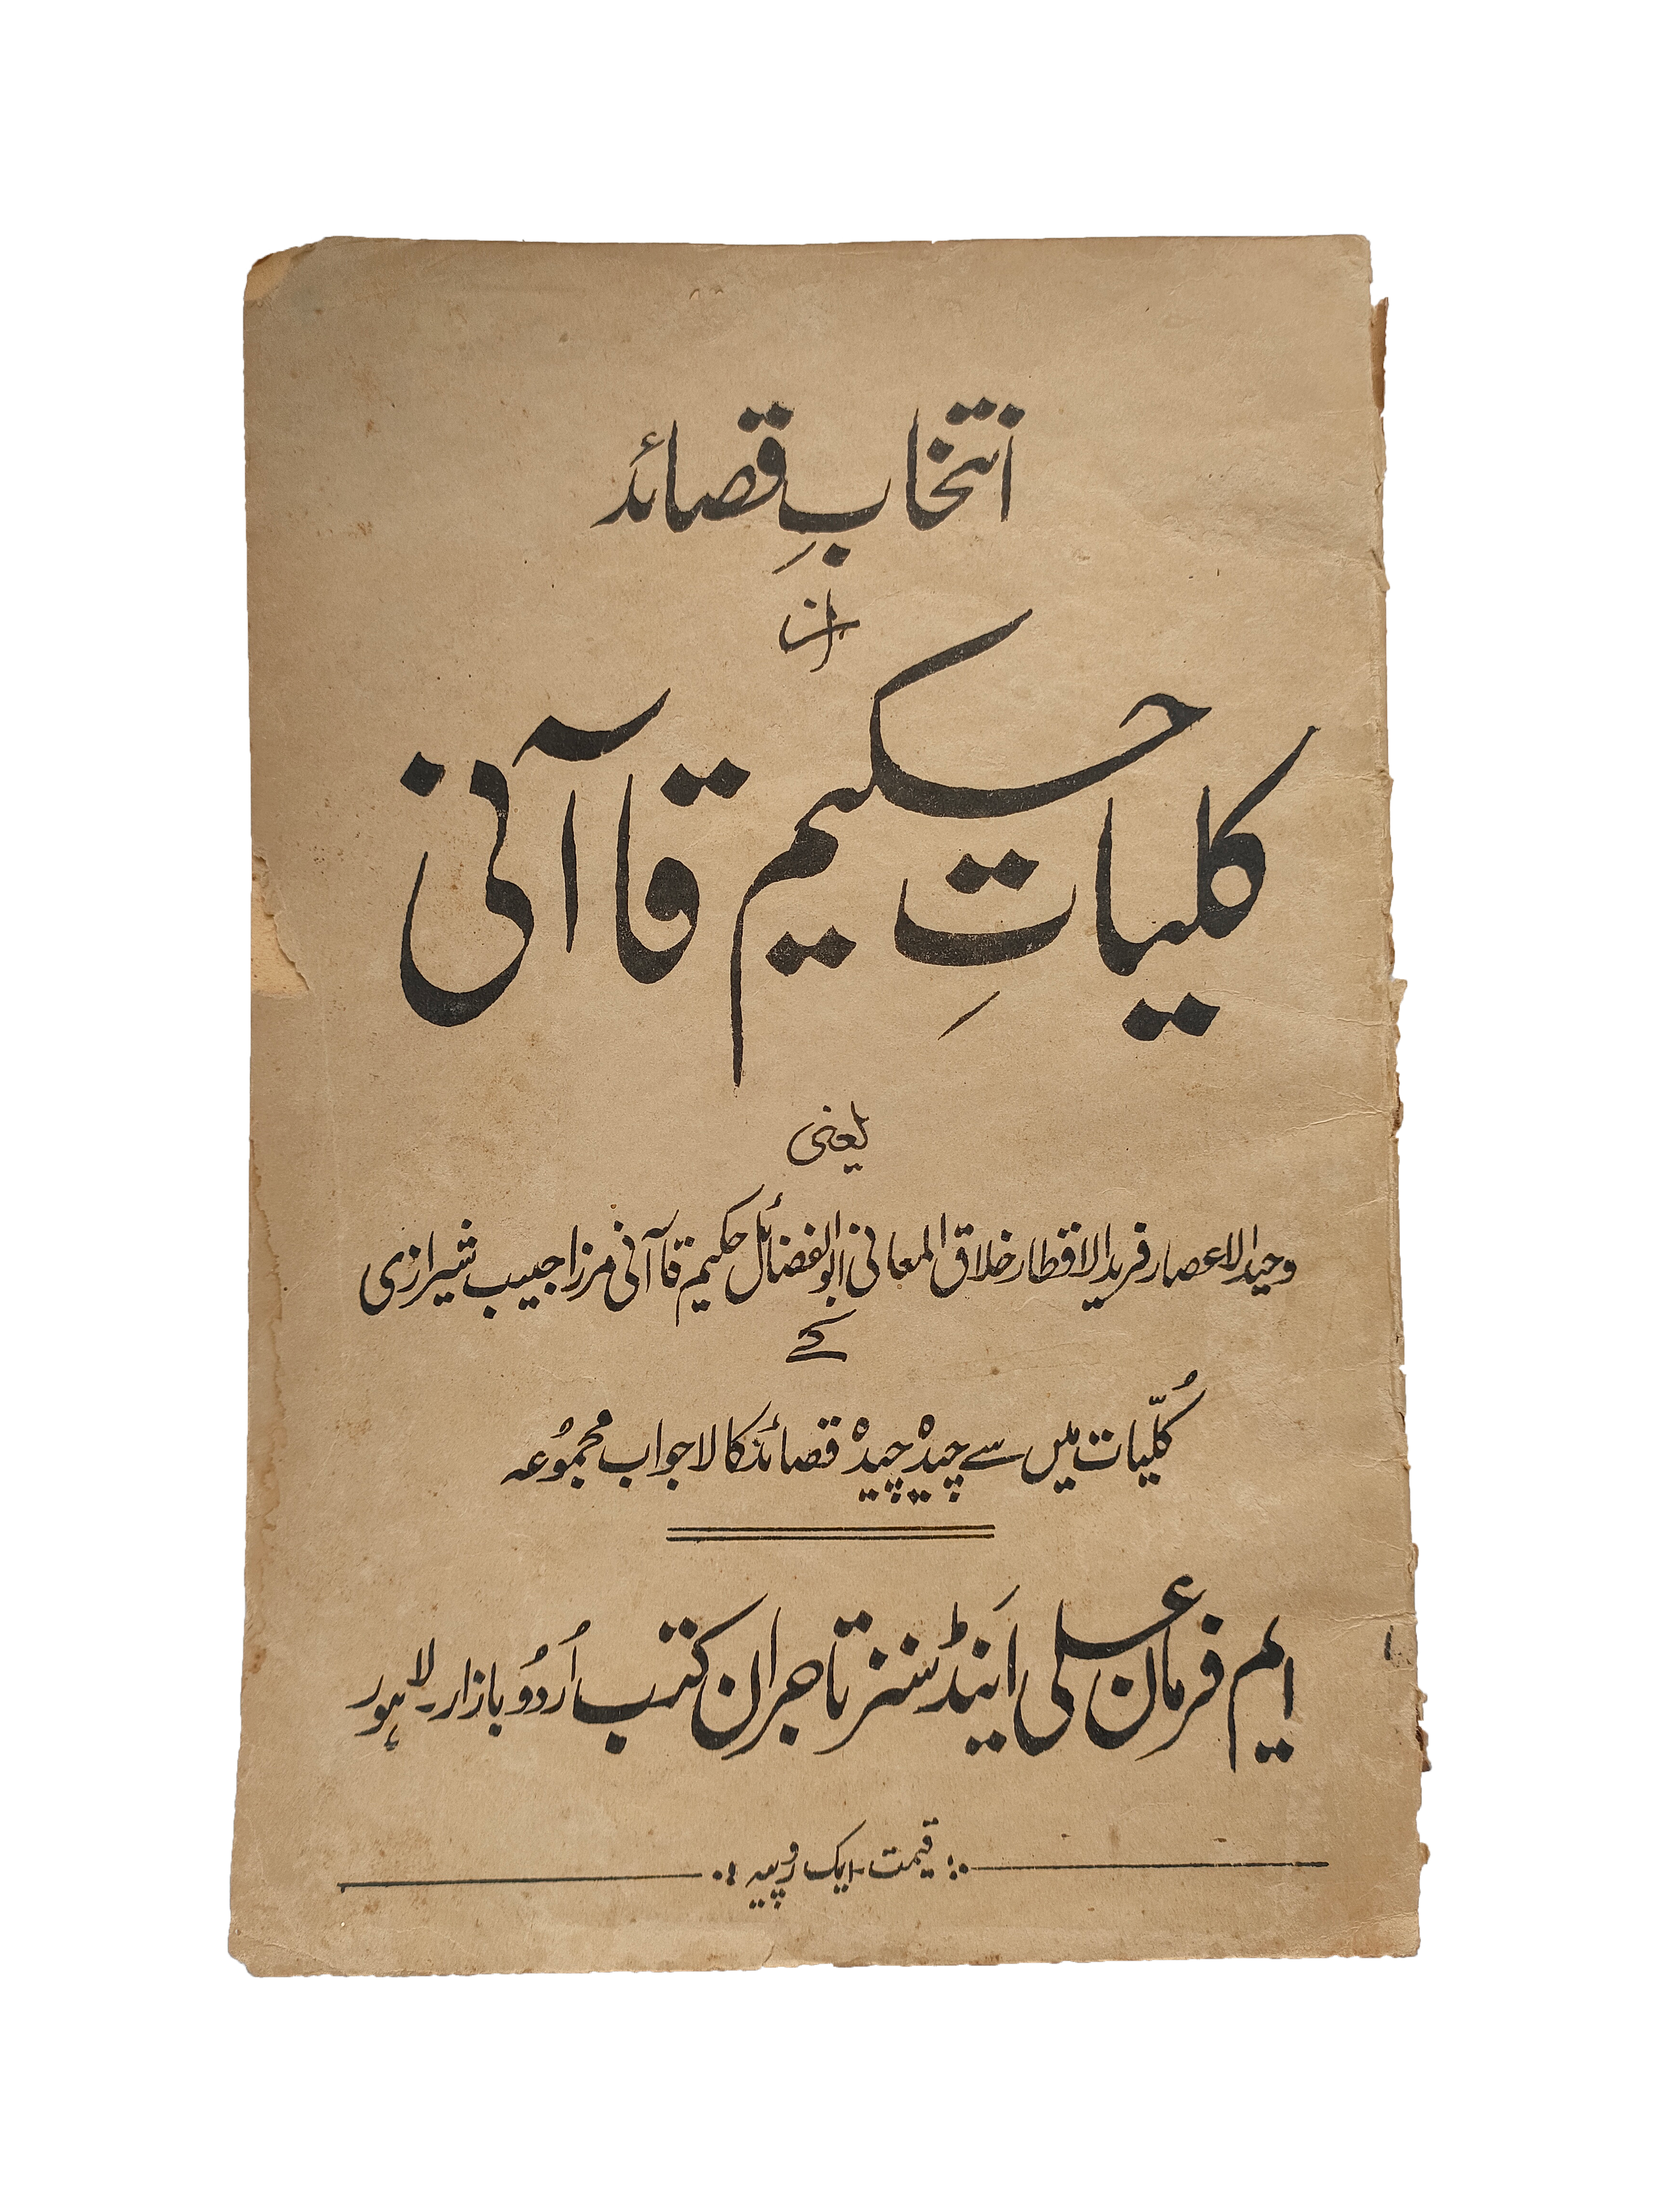 انتخابِ قصائد
از
کلیاتِ حکیم قاآنی
یعنی
وحید الاعصار فرید الاقطار خلاق المعانی ابوالفضائل حکیم قاآنی مرزا حبیب شیرازی
کے
کُلّیات میں سے چیدہ چیدہ قصائد کا لاجواب مجموُعہ
ایم فرمان علی اَینڈ سنز تاجران کتب اُردُو بازار۔ لاہور
قیمت ایک روپیہ